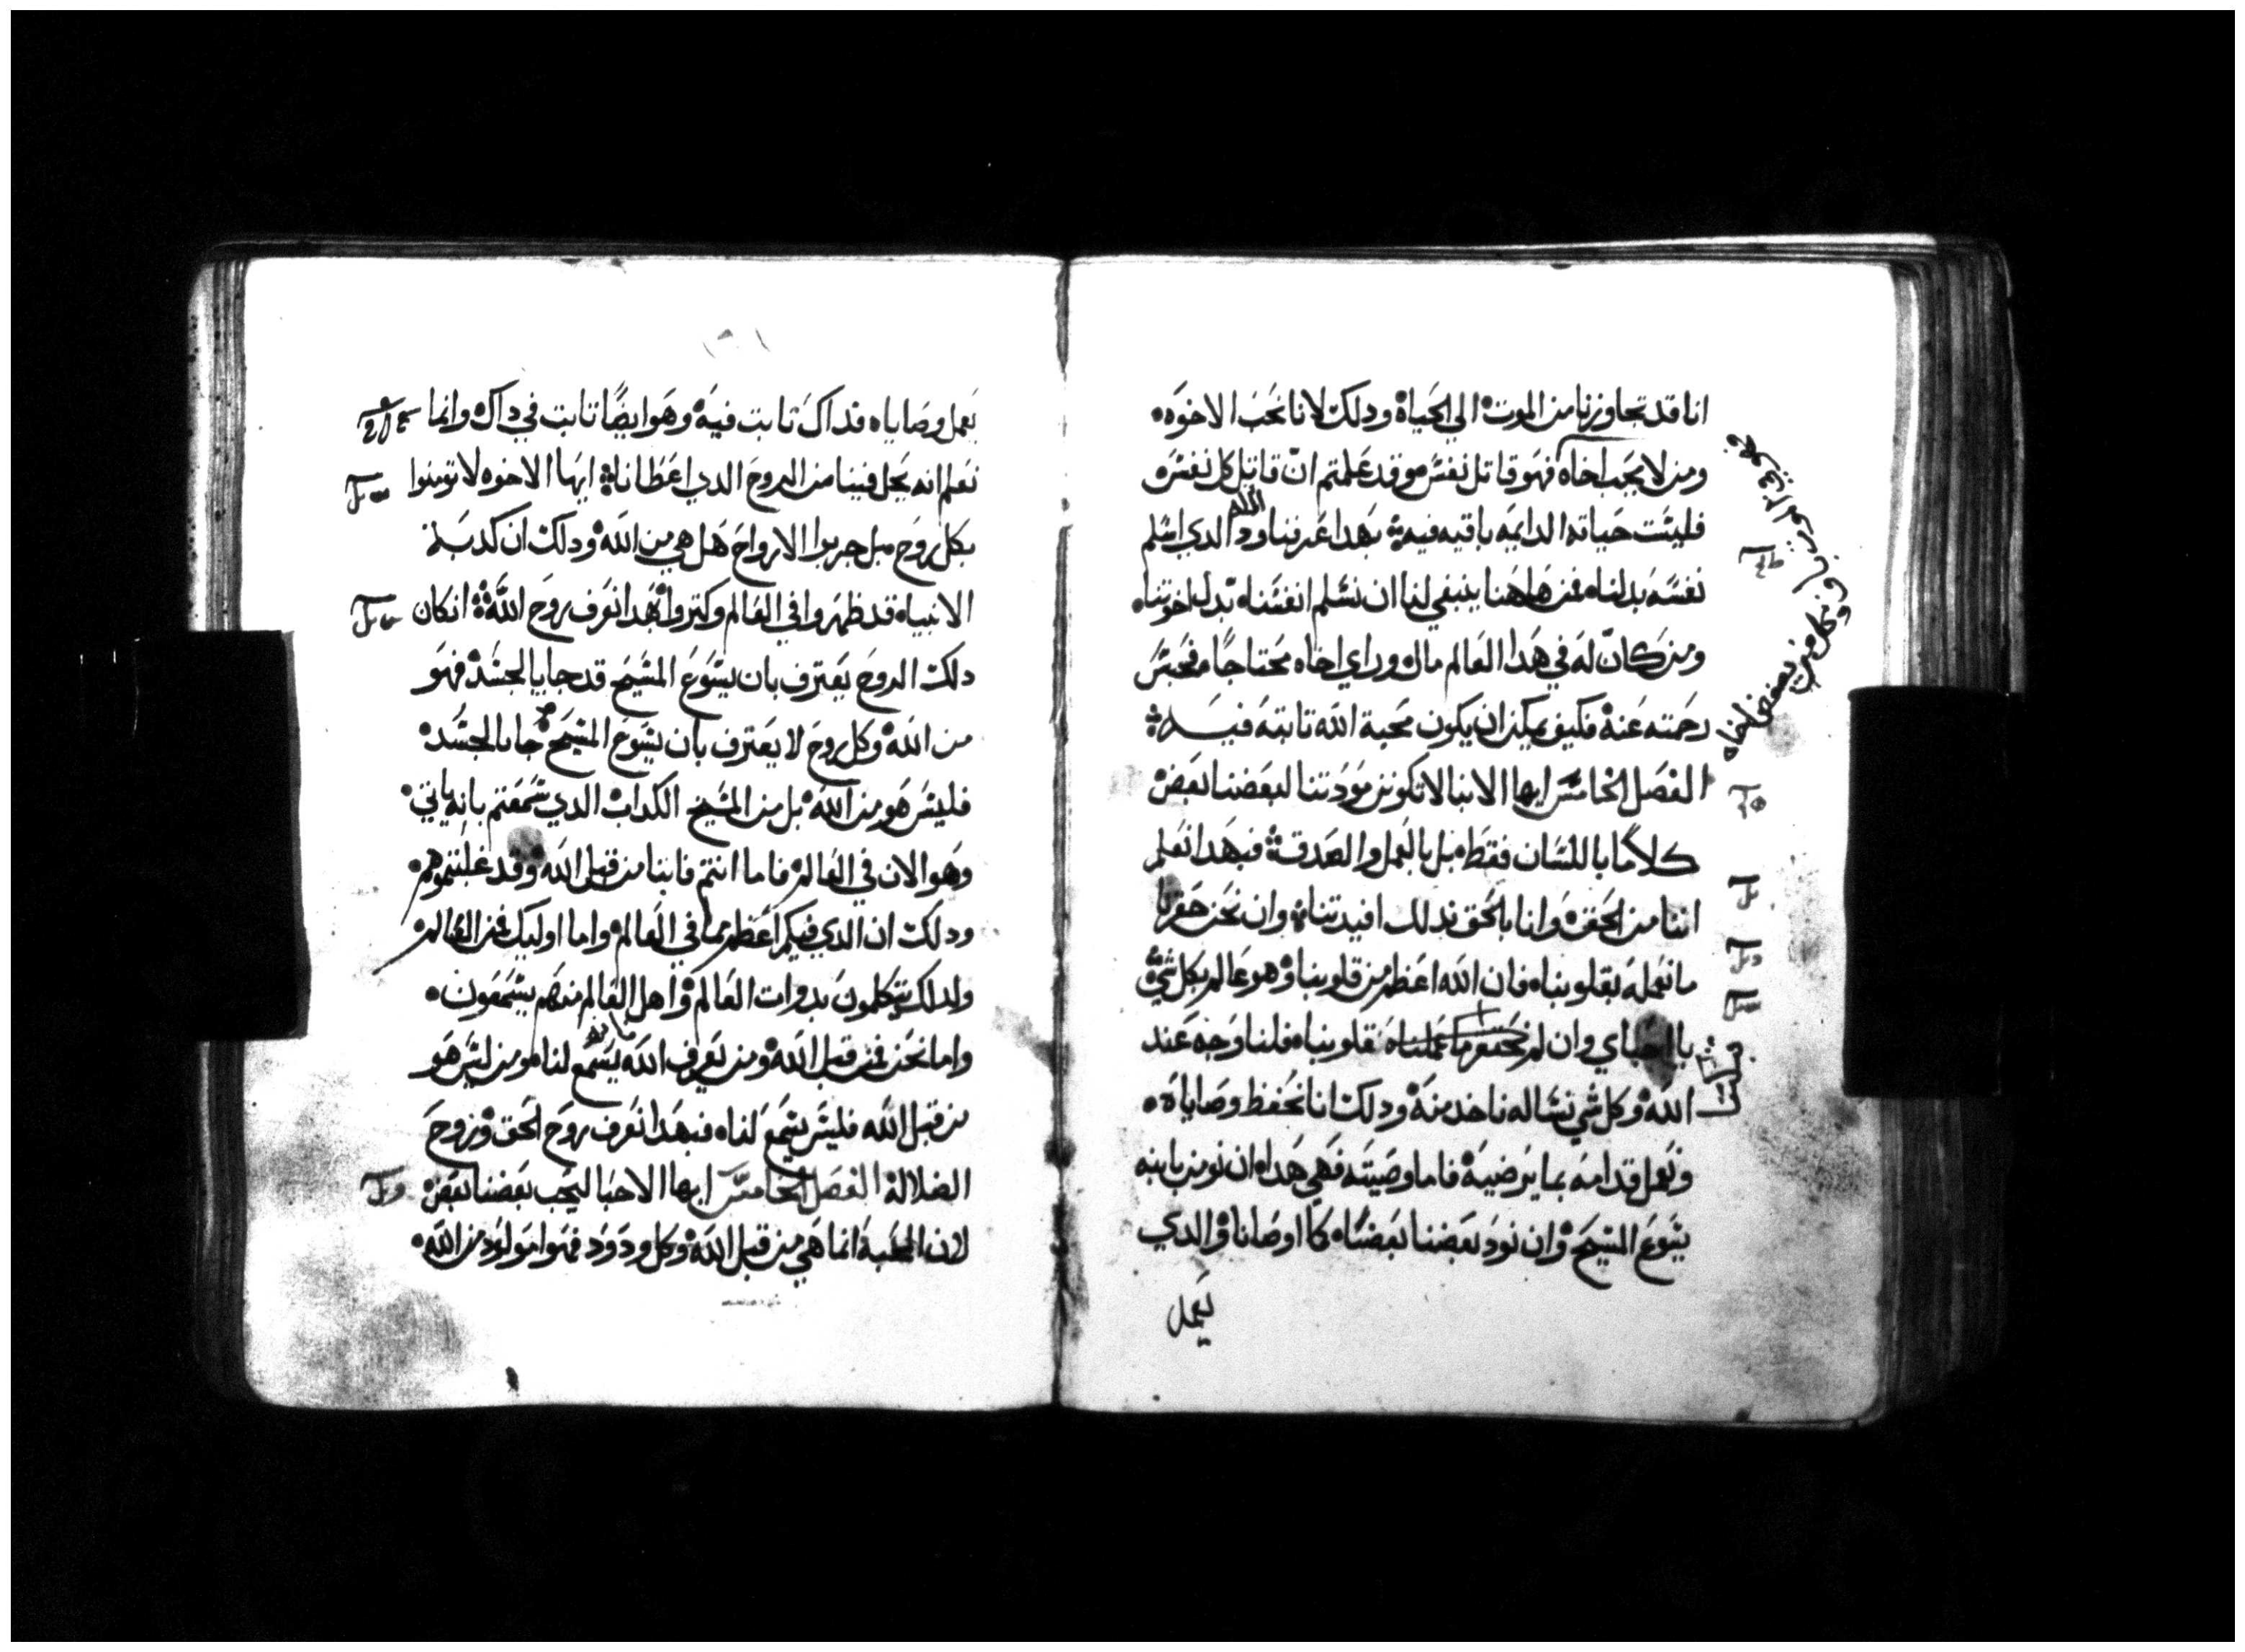 انا قد تجاوزنا من الموت الي الحياة ودلك لانا نحب الاخوه
ومن لا يحب اخاه فهو قاتل نفسه وقد علمتم ان قاتل كل نفس
فليست حياته الدايمه باقيه فيه بهدا عرفنا ود الله الدي اسلم
نفسه بدلنا فمن هاهنا ينبغي لنا ان نسلم انفسنا بدل اخوتنا
ومن كان له في هدا العالم مال وراي اخاه محتاجا فحبس
رحمته عنه فكيف يمكن ان يكون محبة الله تابته فيه
الفصل الخامس ايها الابنا لا تكونن مودتنا لبعضنا بعض
كلاما باللسان فقط بل بالعمل والصدقة فبهدا نعلم
اننا من الحق وانا بالحق ندلك افيدتنا وان نحن حقرنا
ما نعمله بقلوبنا فان الله اعظم من قلوبنا وهو عالم بكل شي
يا احباي وان لم نحقر ما عملناه قلوبنا فلنا وجه عند
الله وكل شي نساله ناخد منه ودلك انا نحفظ وصاياه
ونعمل قدامه بما يرضيه فاما وصيته فهي هدا ان نومن بابنه
يسوع المسيح وان نود بعضنا بعضا كما اوصانا والدي
يعمل
وكل من يبغض اخاه
يعمل وصاياه فداك تابت فيه وهو ايضا تابت في داك وانما
نعلم انه يحل فينا من الروح الدي اعطانا ايها الاخوه لا تومنوا
بكل روح بل جربوا الارواح هل هي من الله ودلك ان كدبة
الانبياه قد ظهروا في العالم وكتروا بهدا نعرف روح الله ان كان
دلك الروح يعترف بان يسوع المسيح قد جا بالجسد فهو
من الله وكل روح لا يعترف بان يسوع المسيح جا بالجسد
فليس هو من الله بل من المسيح الكداب الدي سمعتم بانه ياتي
وهو الان في العالم فاما انتم فابنا من قبل الله وقد غلبتموهم
ودلك ان الدي فيكم اعظم مما في العالم واما اوليك فمن العالم
ولدلك يتكلمون بدوات العالم واهل العالم منهم يسمعون
واما نحن فمن قبل الله ومن يعرف الله يسمع لنا ومن ليس هو
من قبل الله فليس يسمع لنا فبهدا نعرف روح الحق وروح
الضلالة الفصل الخامس ايها الاحبا ليحب بعضنا بعض
لان المحبة انما هي من قبل الله وكل ودود فهو مولود من الله